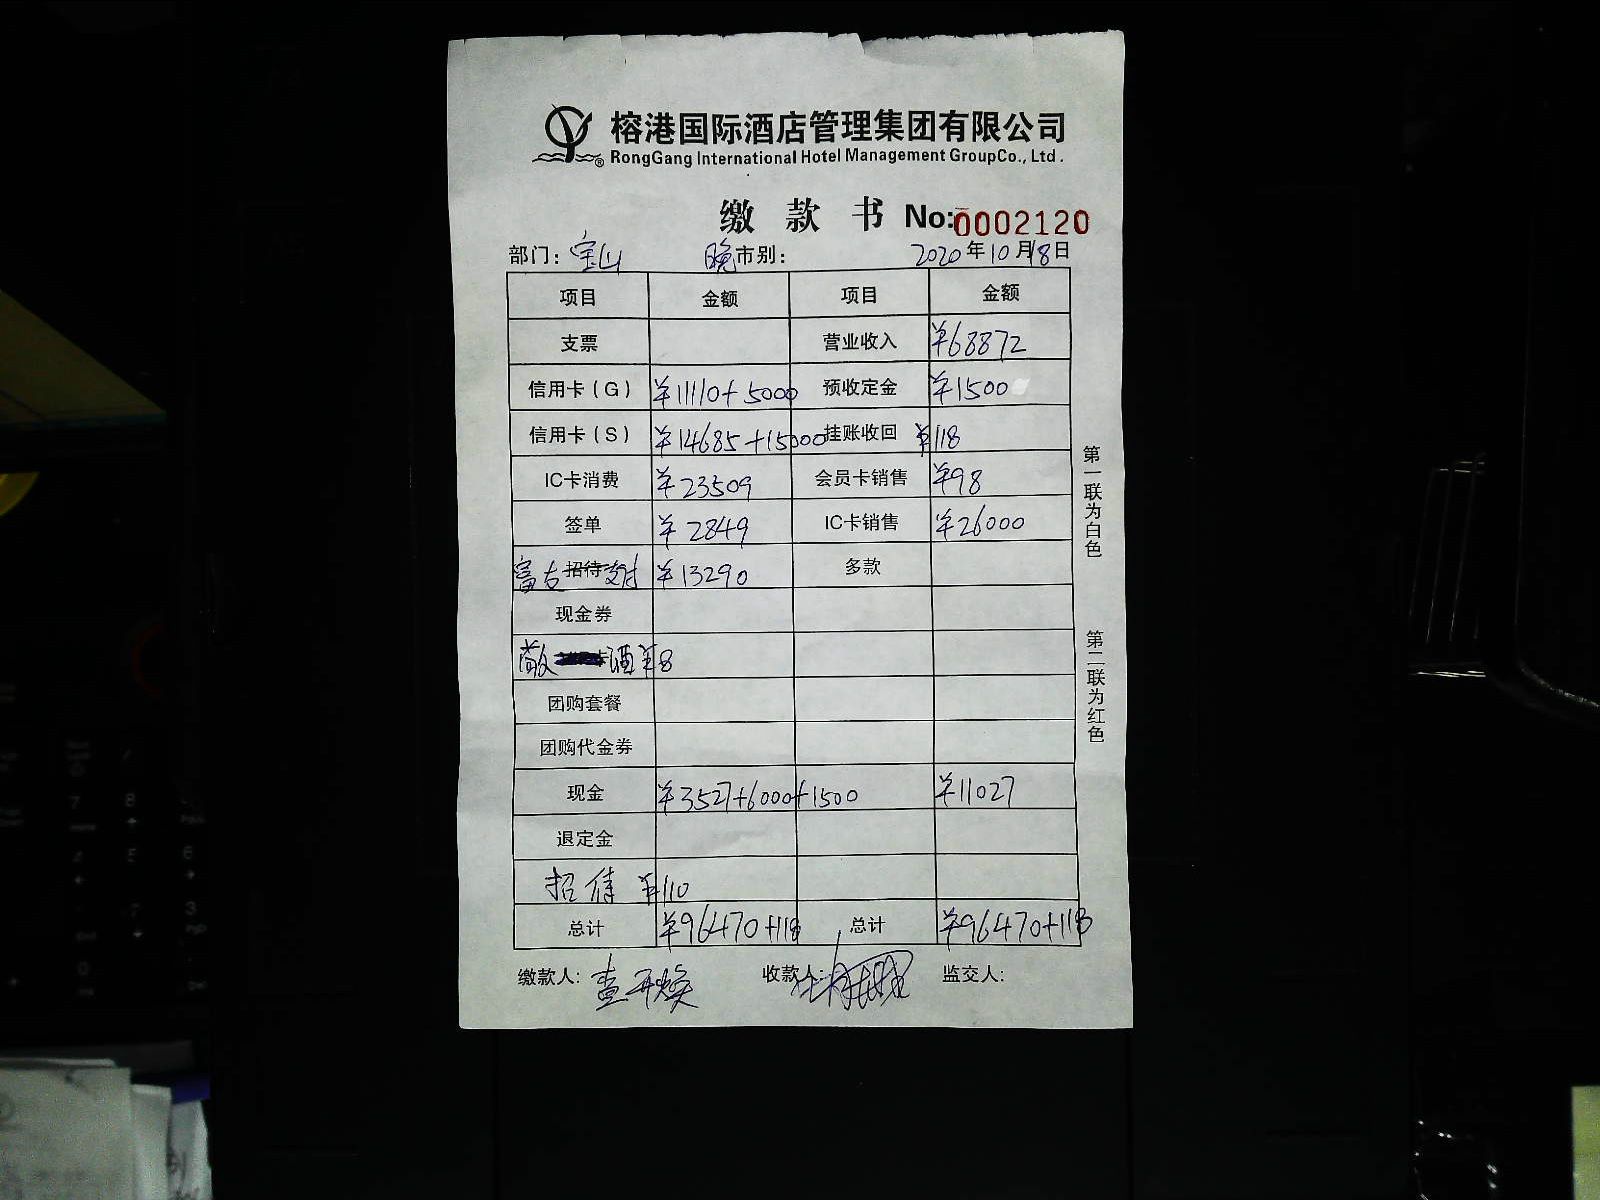 榕港国际酒店管理集团有限公司
RongGang International Hotel Management GroupCo., Ltd.
缴 款 书 No:0002120
部门: 宝山 晚市别: 2020年10月18日
项目 金额 项目 金额
支票 营业收入 ¥68872
信用卡(G) ¥11110+5000 预收定金 ¥1500
信用卡(S) ¥14685+15000 挂账收回 ¥118
IC卡消费 ¥23509 会员卡销售 ¥98
签单 ¥2849 IC卡销售 ¥26000
富友招待支付 ¥13290 多款
现金券
酒 ¥8
团购套餐
团购代金券
现金 ¥3527+6000+1500 ¥11027
退定金
招待 ¥110
总计 ¥96470+118 总计 ¥96470+118
缴款人: 收款人: 监交人:
第一联为白色
第二联为红色